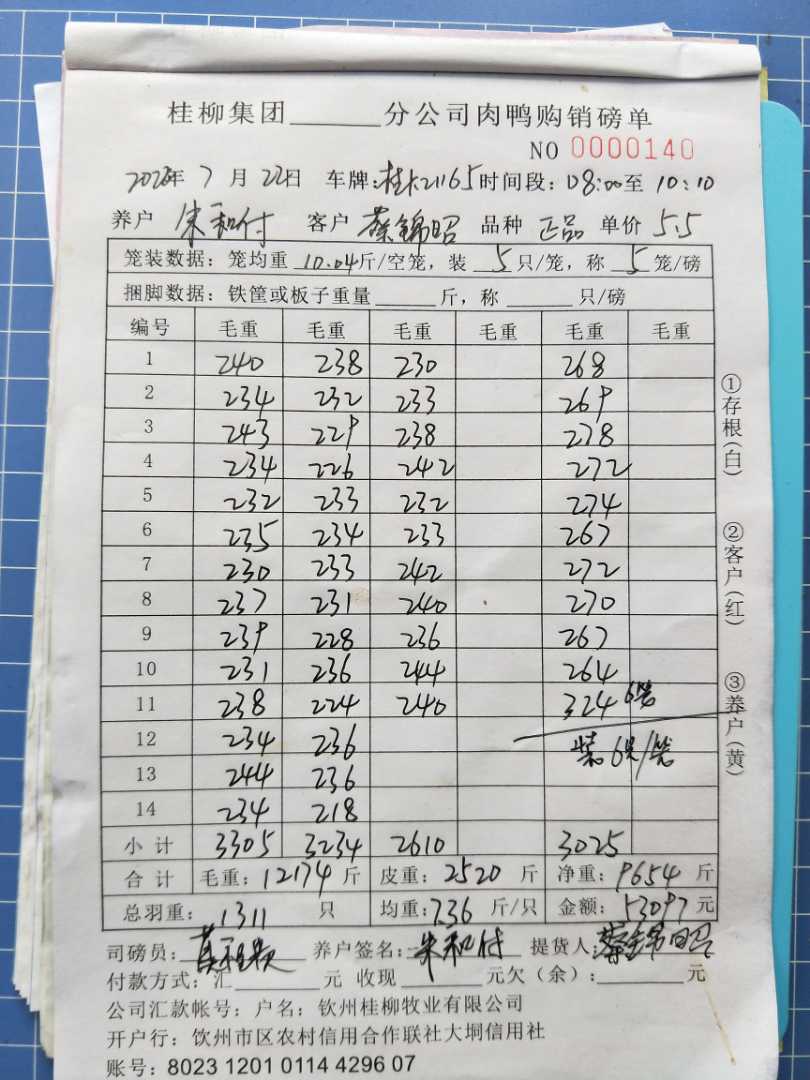 桂柳集团______分公司肉鸭购销磅单
NO 0000140
2020年 7 月 22日 车牌:桂K21165 时间段: 08:00至 10:10
养户 朱和付 客户 蔡锦昭 品种 正品 单价 5.5
笼装数据: 笼均重 10.04斤/空笼, 装 5 只/笼, 称 5 笼/磅
捆脚数据: 铁筐或板子重量______斤, 称______只/磅
编号 毛重 毛重 毛重 毛重 毛重 毛重
1 240 238 230 268
2 234 232 233 269
3 243 229 238 278
4 234 226 242 272
5 232 233 232 274
6 235 234 233 267
7 230 233 242 272
8 237 231 240 270
9 239 228 236 267
10 231 236 244 264
11 238 224 240 324 6笼
12 234 236 装6只/笼
13 244 236
14 234 218
小计 3305 3234 2610 3025
合计 毛重: 12174 斤 皮重: 2520 斤 净重: 9654 斤
总羽重: 1311 只 均重: 7.36 斤/只 金额: 53097 元
司磅员: 养户签名: 朱和付 提货人: 蔡锦昭
付款方式: 汇______元 收现______元欠（余）:______元
公司汇款帐号: 户名: 钦州桂柳牧业有限公司
开户行: 饮州市区农村信用合作联社大垌信用社
账号: 8023 1201 0114 4296 07
①存根(白) ②客户(红) ③养户(黄)